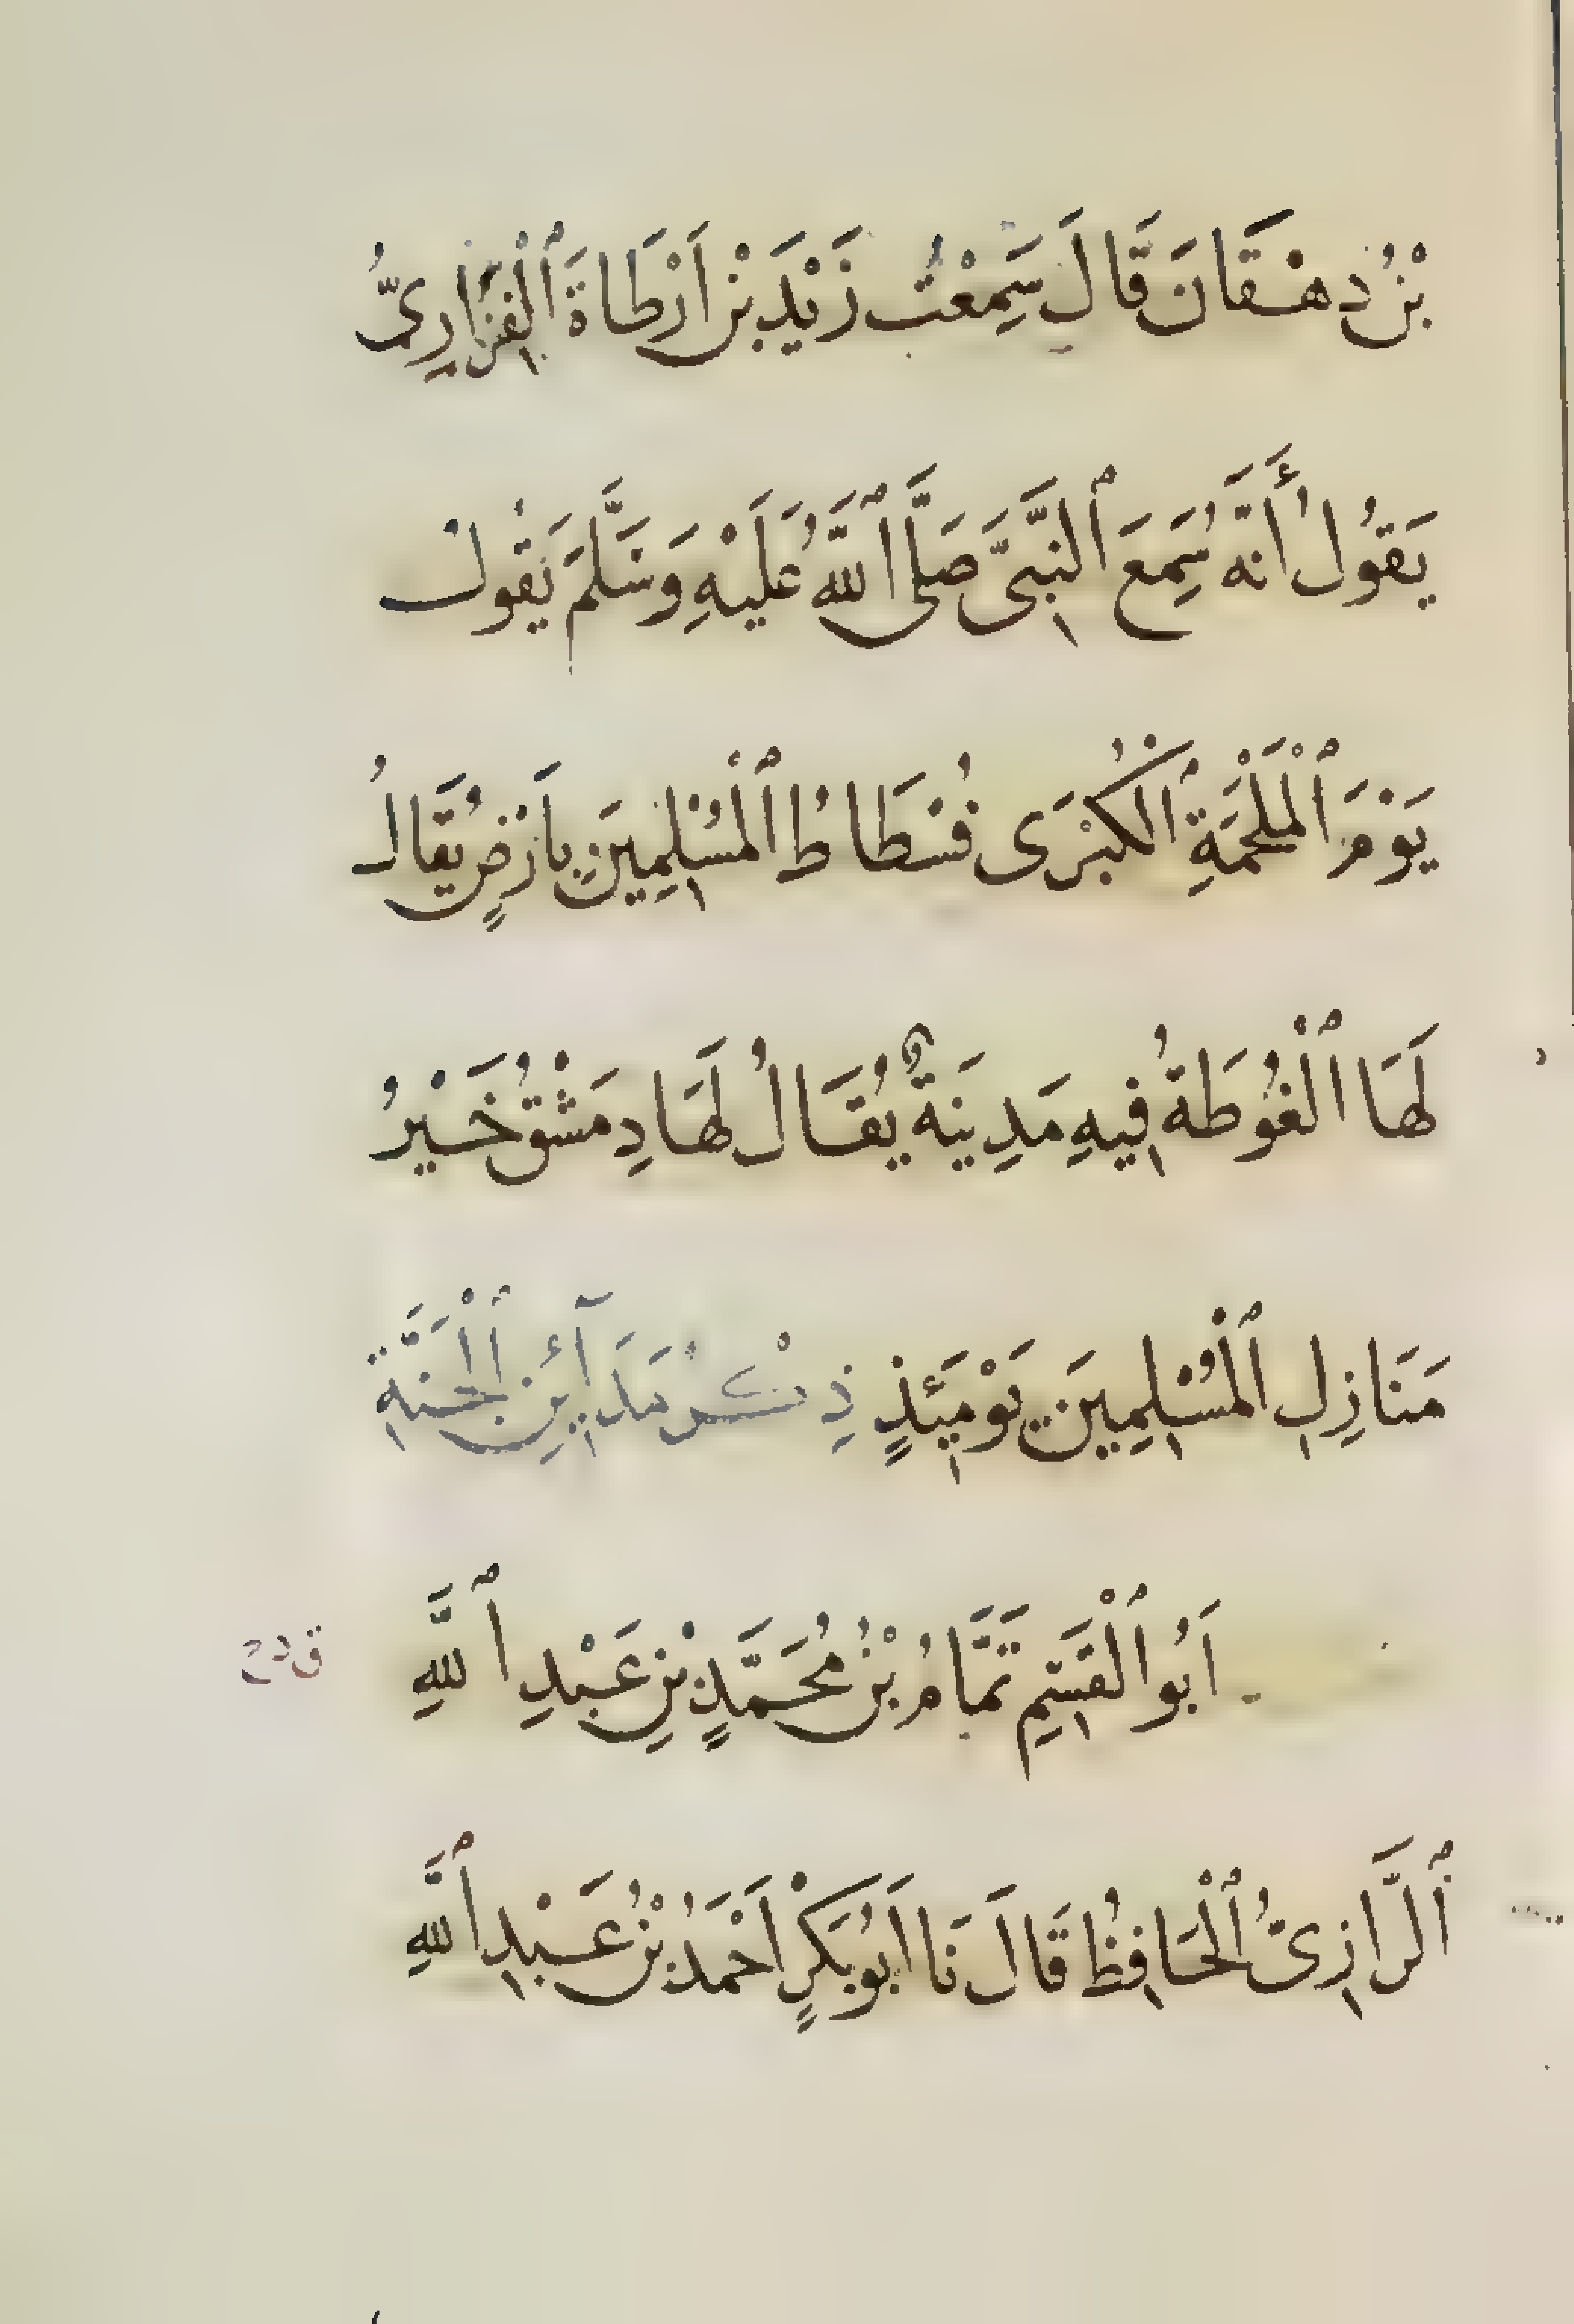 بْنُ دِهْقَانَ قَالَ سَمِعْتُ زَيْدَ بْنَ اَرْطَاةَ ٱلْفَزَارِيُّ
يَقُولُ أَنَّهُ سَمِعَ ٱلنَّبِيَّ صَلَّى ٱللَّهُ عَلَيْهِ وَسَلَّمَ يَقُولُ
يَوْمَ ٱلْمَلْحَمَةِ ٱلْكُبْرَى فُسْطَاطُ ٱلْمُسْلِمِينَ بِاَرْضٍ يُقَالُ
لَهَا ٱلْغُوطَةُ فِيهِ مَدِينَةٌ يُقَالُ لَهَا دِمَشْقُ خَيْرُ
مَنَازِلِ ٱلْمُسْلِمِينَ يَوْمَئِذٍ ذِكْرُ مَدَآئِنِ ٱلْجَنَّةِ
اَبُو ٱلْقَسَمِ تَمَّامُ بْنُ مُحَمَّدِ بْنِ عَبْدِ ٱللَّهِ
ٱلرَّازِيُّ ٱلْحَافِظُ قَالَ نَا اَبُو بَكْرٍ اَحْمَدُ بْنُ عَبْدِ ٱللَّهِ